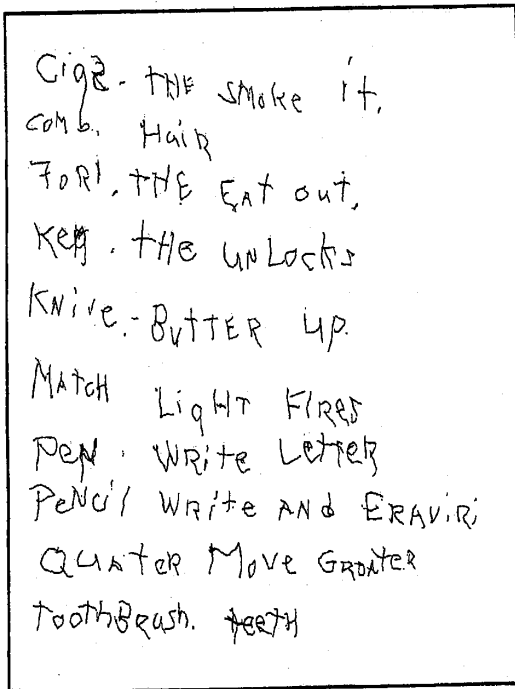 Cig2. THE SMoke it.
COMb. HaiR
FORI. THE EAt out.
Key. tHe UNLocks
KNive.- ButtER up.
MAtcH LigHT FIRES
Pen. WRite LetteR
PeNcil WRite ANd ERAViRi
QUAteR Move GROATER
toothBRush. teetH